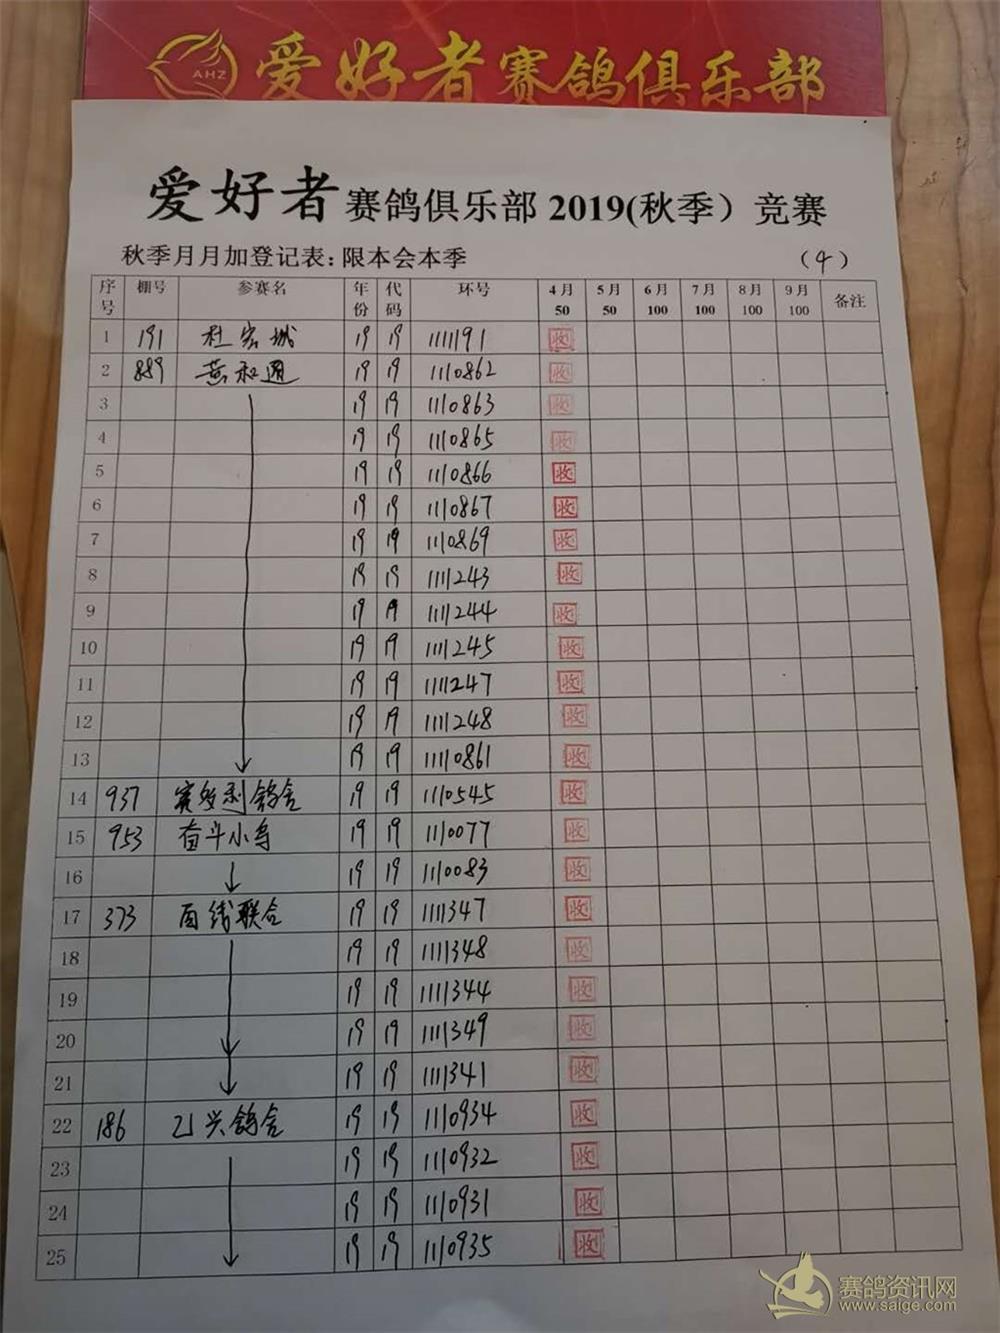 AHZ
爱好者赛鸽俱乐部
爱好者赛鸽俱乐部2019(秋季）竞赛
秋季月月加登记表:限本会本季 （4）
序号 棚号 参赛名 年份 代码 环号 4月50 5月50 6月100 7月100 8月100 9月100 备注
1 191 杜宏城 19 19 1111191 收
2 889 黄和通 19 19 1110862 收
3 19 19 1110863 收
4 19 19 1110865 收
5 19 19 1110866 收
6 19 19 1110867 收
7 19 19 1110869 收
8 19 19 1111243 收
9 19 19 1111244 收
10 19 19 1111245 收
11 19 19 1111247 收
12 19 19 1111248 收
13 19 19 1110861 收
14 937 赛多利鸽舍 19 19 1110545 收
15 953 奋斗小鸟 19 19 1110077 收
16 19 19 1110083 收
17 373 西线联合 19 19 1111347 收
18 19 19 1111348 收
19 19 19 1111344 收
20 19 19 1111349 收
21 19 19 1111341 收
22 186 兴鸽舍 19 19 1110934 收
23 19 19 1110932 收
24 19 19 1110931 收
25 19 19 1110935 收
赛鸽资讯网
www.saige.com